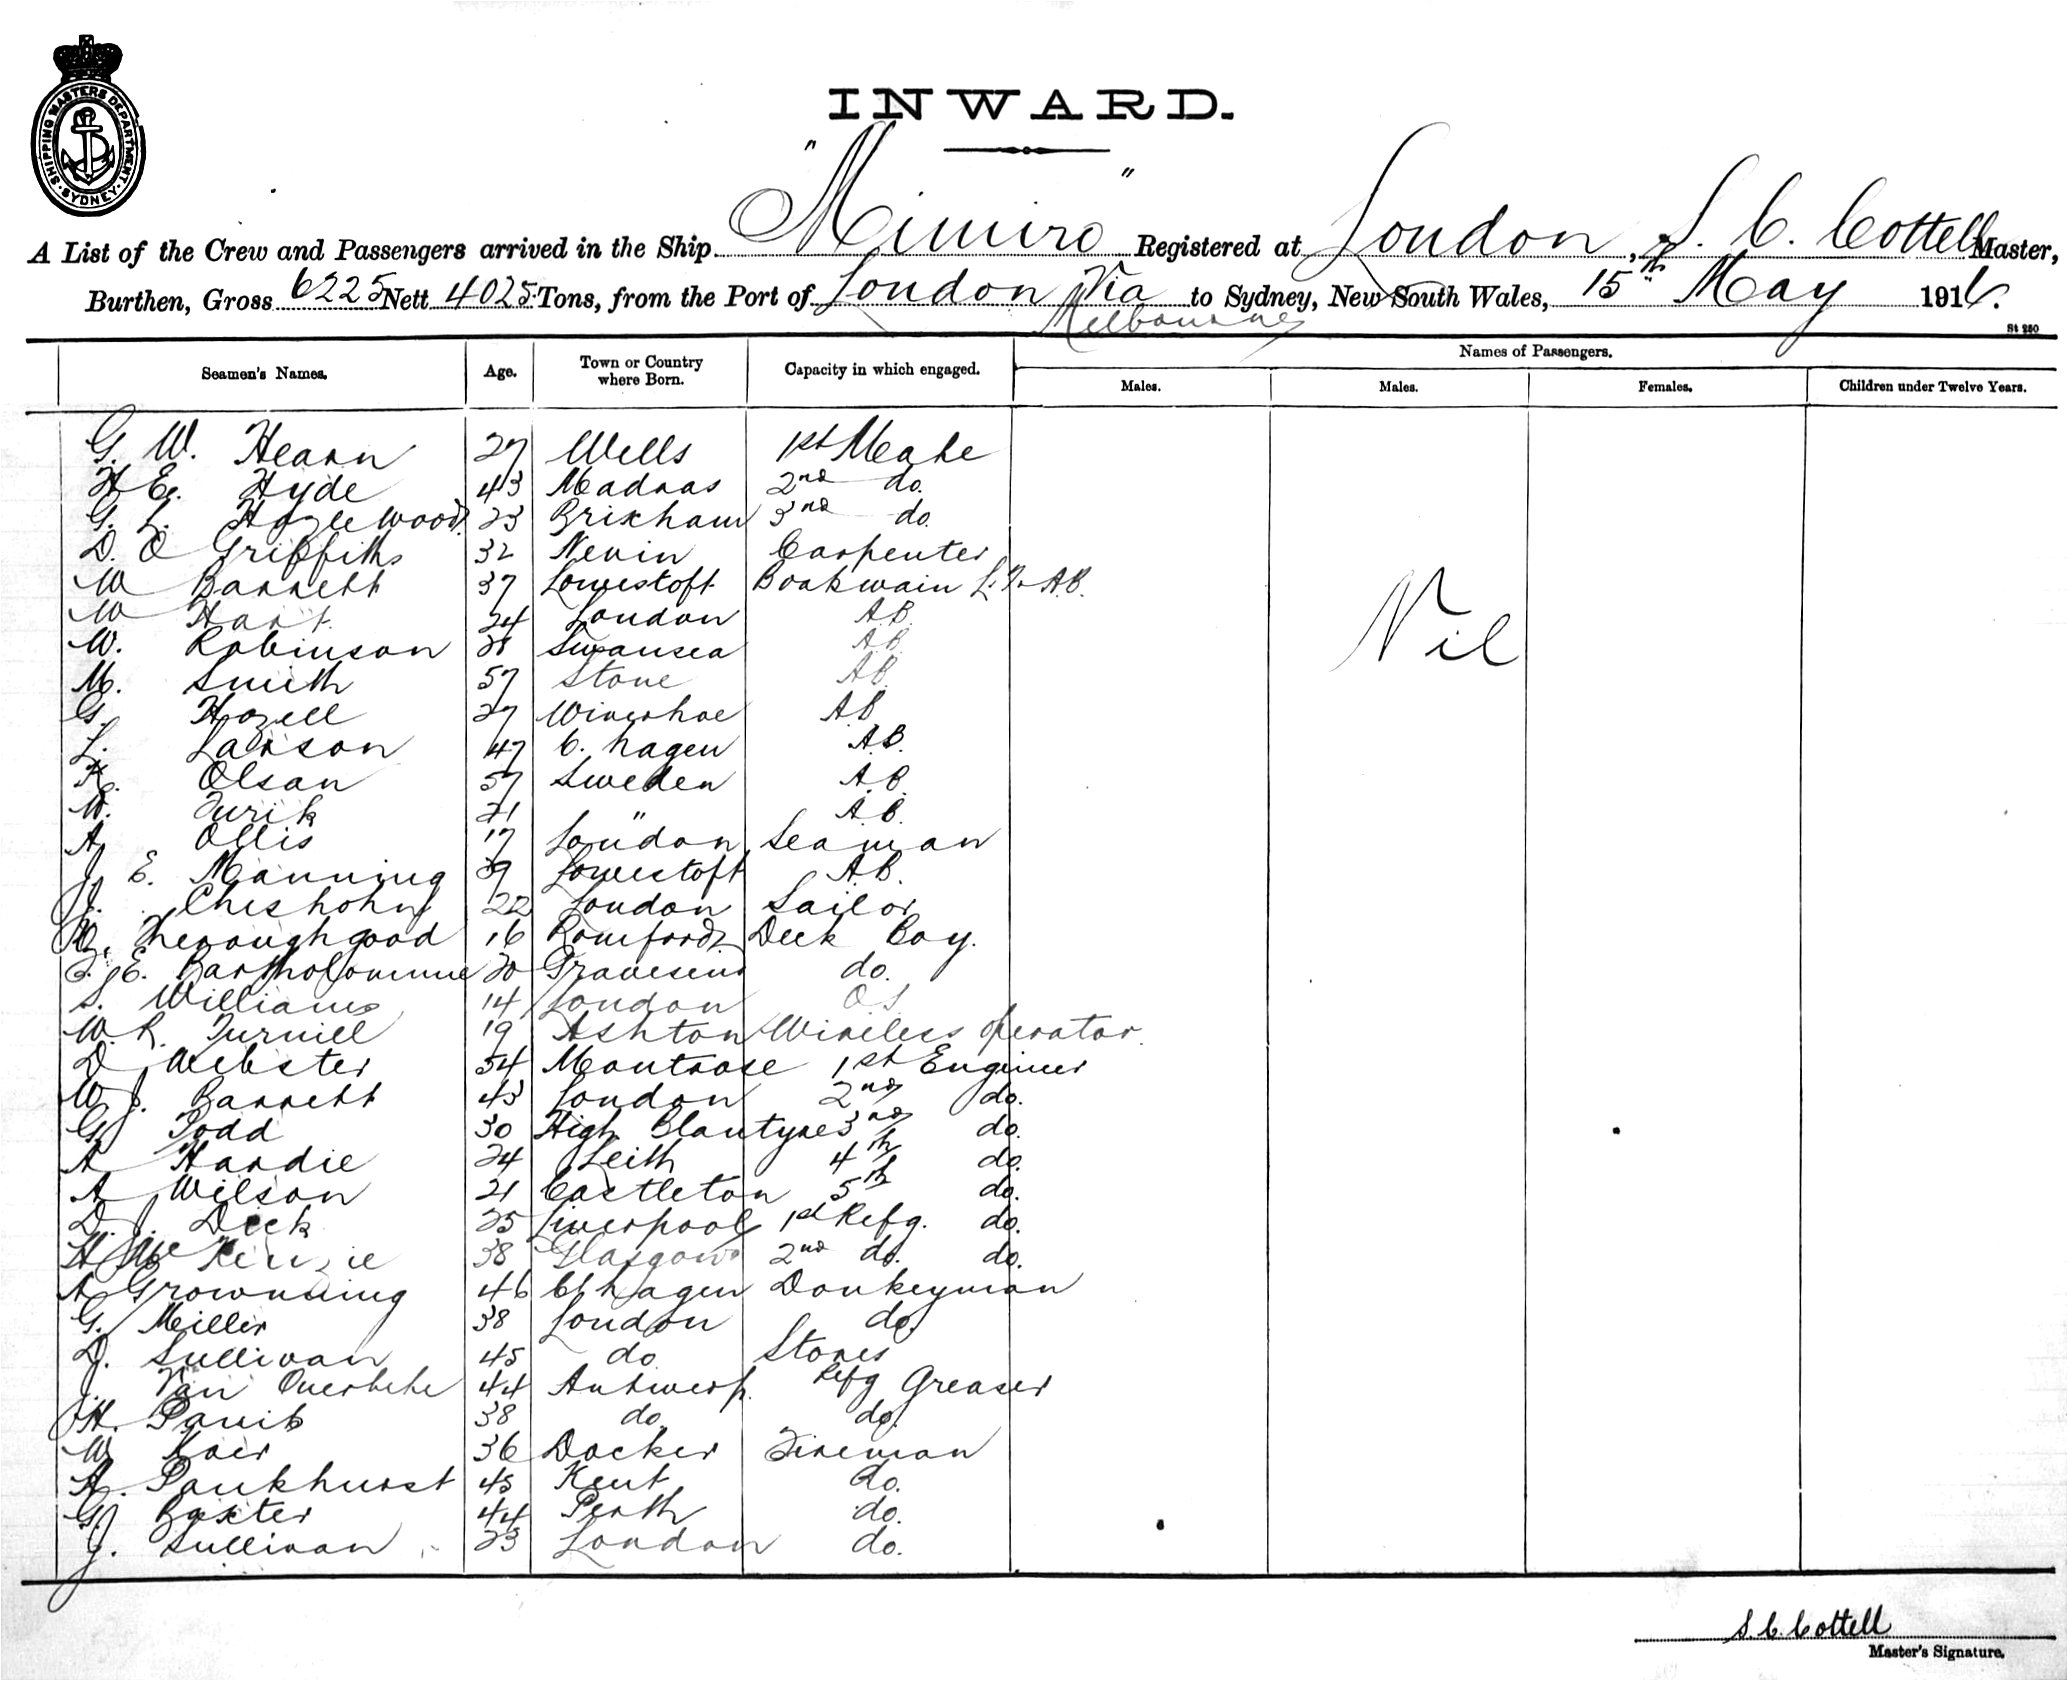 SHIPPING MASTERS DEPARTMENT · SYDNEY ·
INWARD.
A List of the Crew and Passengers arrived in the Ship "Mimiro" Registered at London, S. C. Cottell Master,
Burthen, Gross 6225 Nett 4025 Tons, from the Port of London Via Melbourne to Sydney, New South Wales, 15th May 1916.
St 250
Seamen's Names. Age. Town or Country where Born. Capacity in which engaged. Names of Passengers.
Males. Males. Females. Children under Twelve Years.
G. W. Hearn 27 Wells 1st Mate
H E. Hyde 43 Madras 2nd do.
G. L. Hazlewood 23 Brixham 3rd do
D. O Griffiths 32 Nevin Carpenter
W Barrett 37 Lowestoft Boatswain L. Tr A.B.
W Hart 24 London A.B.
W. Robinson 28 Swansea AB
M. Smith 57 Stone AB
G. Hazell 27 Wivenhoe AB
L. Larson 47 C. hagen A.B.
K. Olsan 57 Sweden A.B.
W. Turik 21 " A.B.
A Ollis 17 London Seaman
J E. Manning 39 Lowestoft A.B.
J. Chisholm 22 London Sailor
W. Thoroughgood 16 Romford Deck Boy.
E. Bartholomew 20 Gravesend do.
S. Williams 14 London OS
W. R. Turnill 19 Ashton Wireless Operator.
D Webster 54 Montrose 1st Engineer
W J. Barrett 43 London 2nd do.
G Todd 30 High Blantyre 3rd do.
A Hardie 24 Leith 4th do.
A Wilson 21 Castleton 5th do.
D. J. Dick 25 Liverpool 1st Refg. do.
H McKenzie 38 Glasgow 2nd do. do.
A Grownning 46 C hagen Donkeyman
G. Miller 38 London do.
D. Sullivan 45 do Stores
J. Van Overbeke 44 Antwerp. Refg Greaser
H. 38 do. do.
W 36 Docker Fireman
A. Pankhurst 45 Kent do.
G. Baxter 44 Perth do.
J. Sullivan 23 London do.
Nil
S. C. Cottell
Master's Signature.